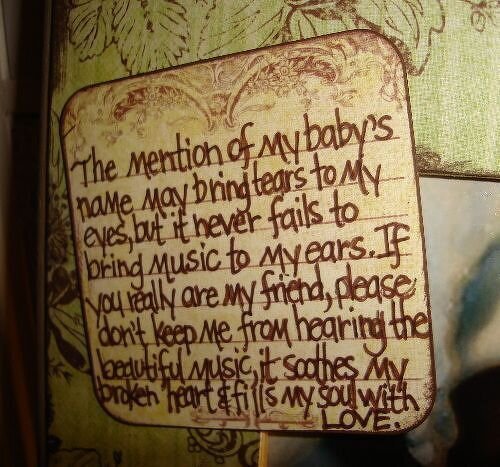 The mention of my baby's
name may bring tears to my
eyes, but it never fails to
bring music to my ears. If
you really are my friend, please
don't keep me from hearing the
beautiful music, it soothes my
broken heart & fills my soul with
LOVE.